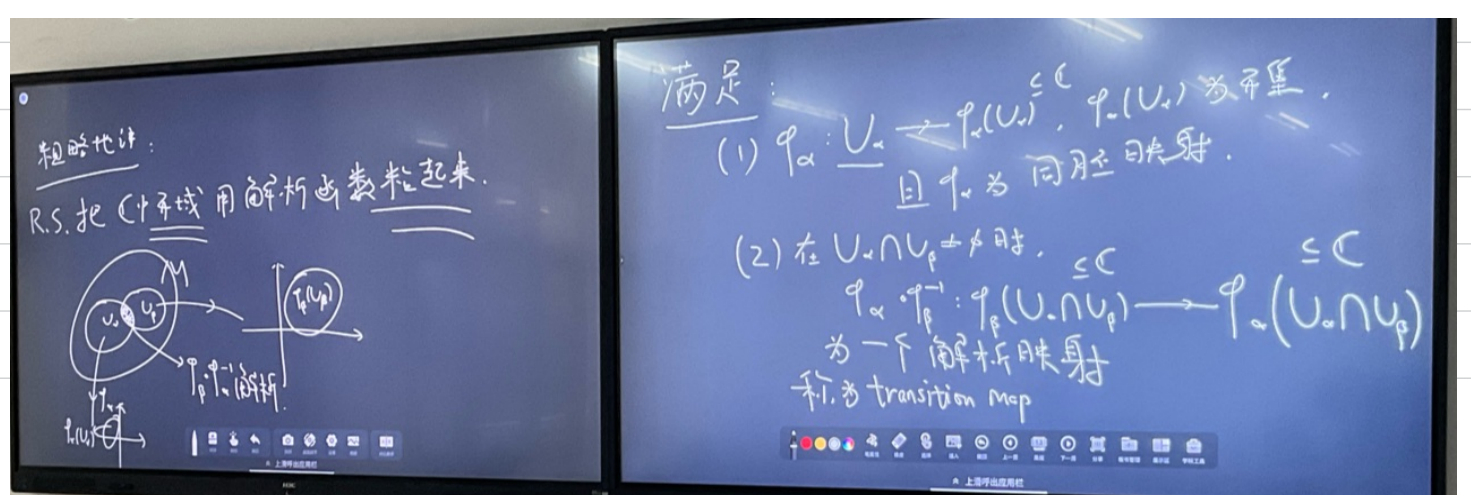 粗略地讲：
R.S. 把 ℂ中开域 用解析函数粘起来.
M
U_α U_β
φ_β(U_β)
φ_β∘φ_α^{-1} 解析.
φ_α
φ_α(U_α)
上滑呼出应用栏
满足：
⊆ ℂ
(1) φ_α : U_α → φ_α(U_α), φ_α(U_α) 为开集.
且 φ_α 为同胚映射.
(2) 在 U_α∩U_β ≠ ∅ 时,
⊆ ℂ ⊆ ℂ
φ_α∘φ_β^{-1} : φ_β(U_α∩U_β) → φ_α(U_α∩U_β)
为一个解析映射
称为 transition map
上滑呼出应用栏